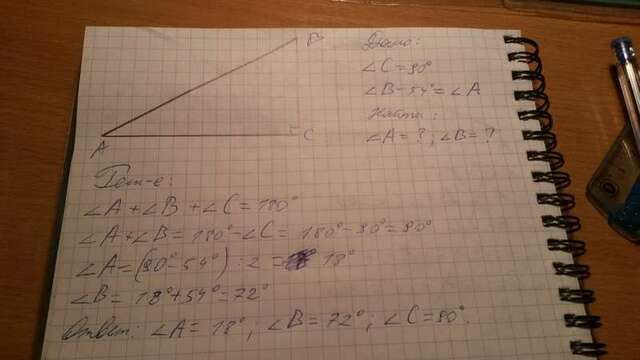 B
Дано:
∠C = 90°
∠B - 54° = ∠A
Найти:
∠A = ?, ∠B = ?
C
A
∠A + ∠B + ∠C = 180°
∠A + ∠B = 180° - ∠C = 180° - 90° = 90°
∠A = (90° - 54°) : 2 = 18°
∠B = 18° + 54° = 72°
Ответ: ∠A = 18°; ∠B = 72°; ∠C = 90°.